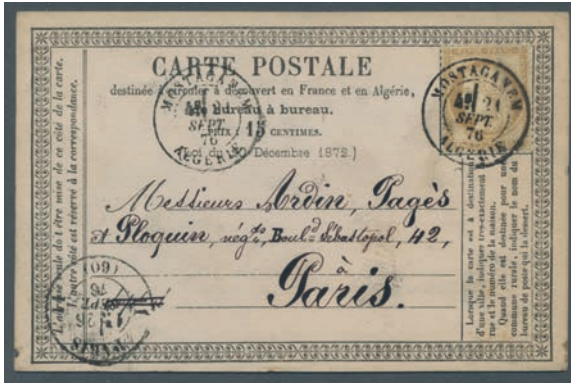 CARTE POSTALE
destinée à circuler à découvert en France et en Algérie,
de bureau à bureau.
PRIX : 15 CENTIMES.
(Loi du 20 Décembre 1872.)
MOSTAGANEM
21
SEPT
76
ALGERIE
MOSTAGANEM
21
SEPT
76
ALGERIE
Messieurs Ardin, Pagès
et Ploquin, négts, Bould Sébastopol, 42,
à
Paris.
L'adresse seule doit être mise de ce côté de la carte.
L'autre côté est réservé à la correspondance.
Lorsque la carte est à destination
d'une ville, indiquer très-exactement la
rue et le numéro de la maison.
Quand elle est destinée pour une
commune rurale, indiquer le nom du
bureau de poste qui la dessert.
PARIS
SEPT
76
(60)